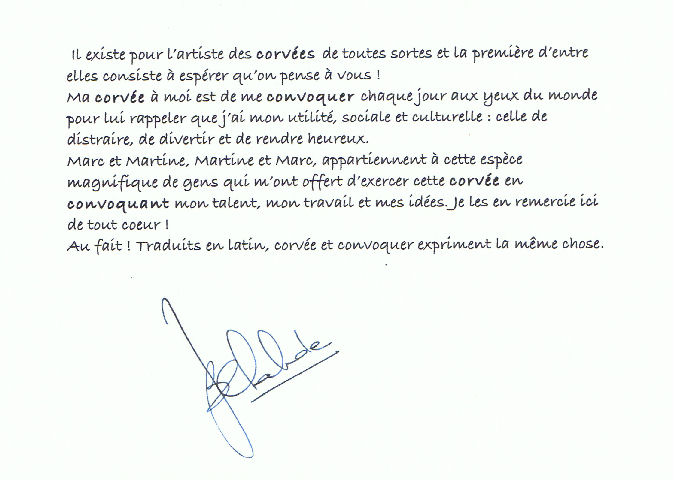 Il existe pour l'artiste des corvées de toutes sortes et la première d'entre
elles consiste à espérer qu'on pense à vous !
Ma corvée à moi est de me convoquer chaque jour aux yeux du monde
pour lui rappeler que j'ai mon utilité, sociale et culturelle : celle de
distraire, de divertir et de rendre heureux.
Marc et Martine, Martine et Marc, appartiennent à cette espèce
magnifique de gens qui m'ont offert d'exercer cette corvée en
convoquant mon talent, mon travail et mes idées. Je les en remercie ici
de tout coeur !
Au fait ! Traduits en latin, corvée et convoquer expriment la même chose.